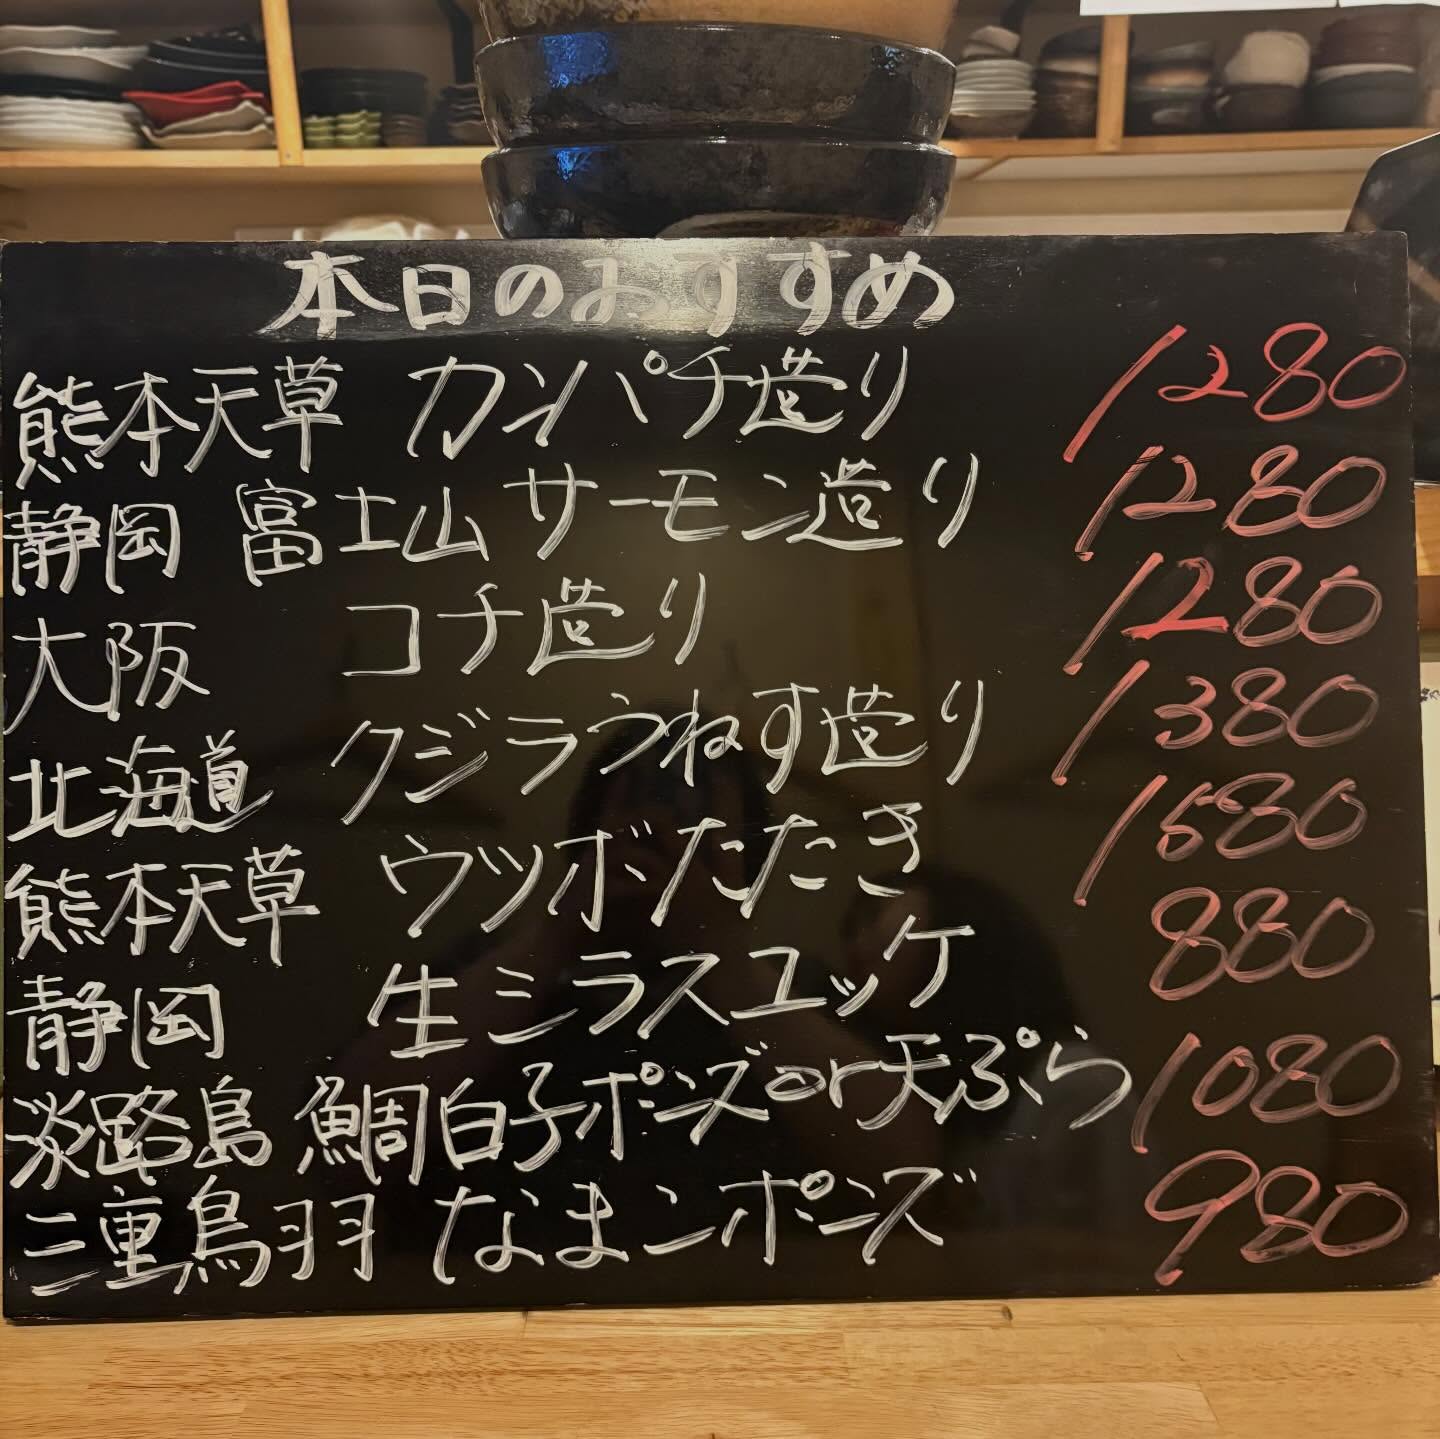 本日のおすすめ
熊本天草 カンパチ造り 1280
静岡 富士山サーモン造り 1280
大阪 コチ造り 1280
北海道 クジラうねす造り 1380
熊本天草 ウツボたたき 1580
静岡 生シラスユッケ 880
淡路島 鯛白子ポン酢or天ぷら 1080
三重鳥羽 なまこポンズ 980